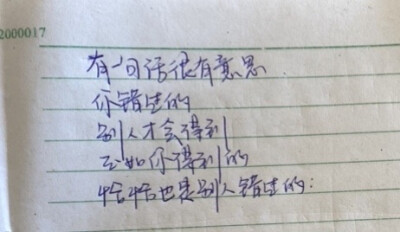 2000017
有一句话很有意思
你错过的
别人才会得到
正如你得到的
恰恰也是别人错过的: